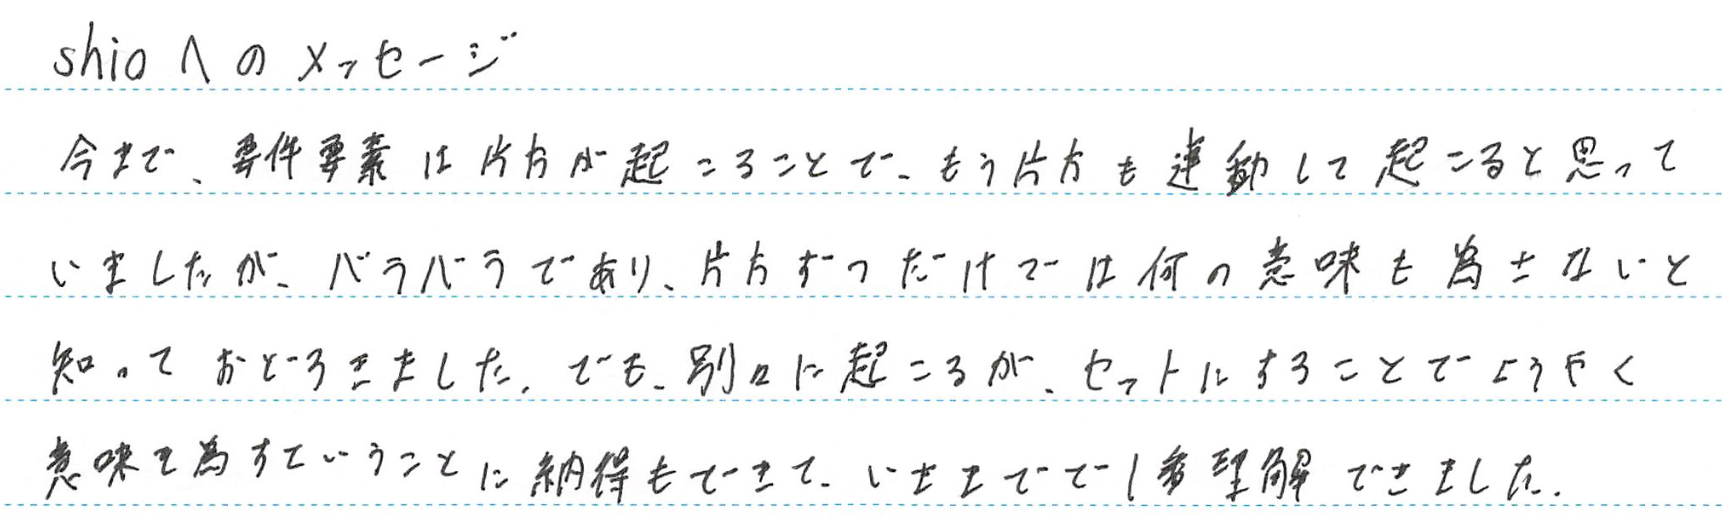 shioへのメッセージ
今まで、要件要素は片方が起こることで、もう片方も連動して起こると思って
いましたが、バラバラであり、片方ずつだけでは何の意味も為さないと
知っておどろきました。でも、別々に起こるが、セットにすることでようやく
意味を為すていうことに納得もできて、いままでで1番理解できました。